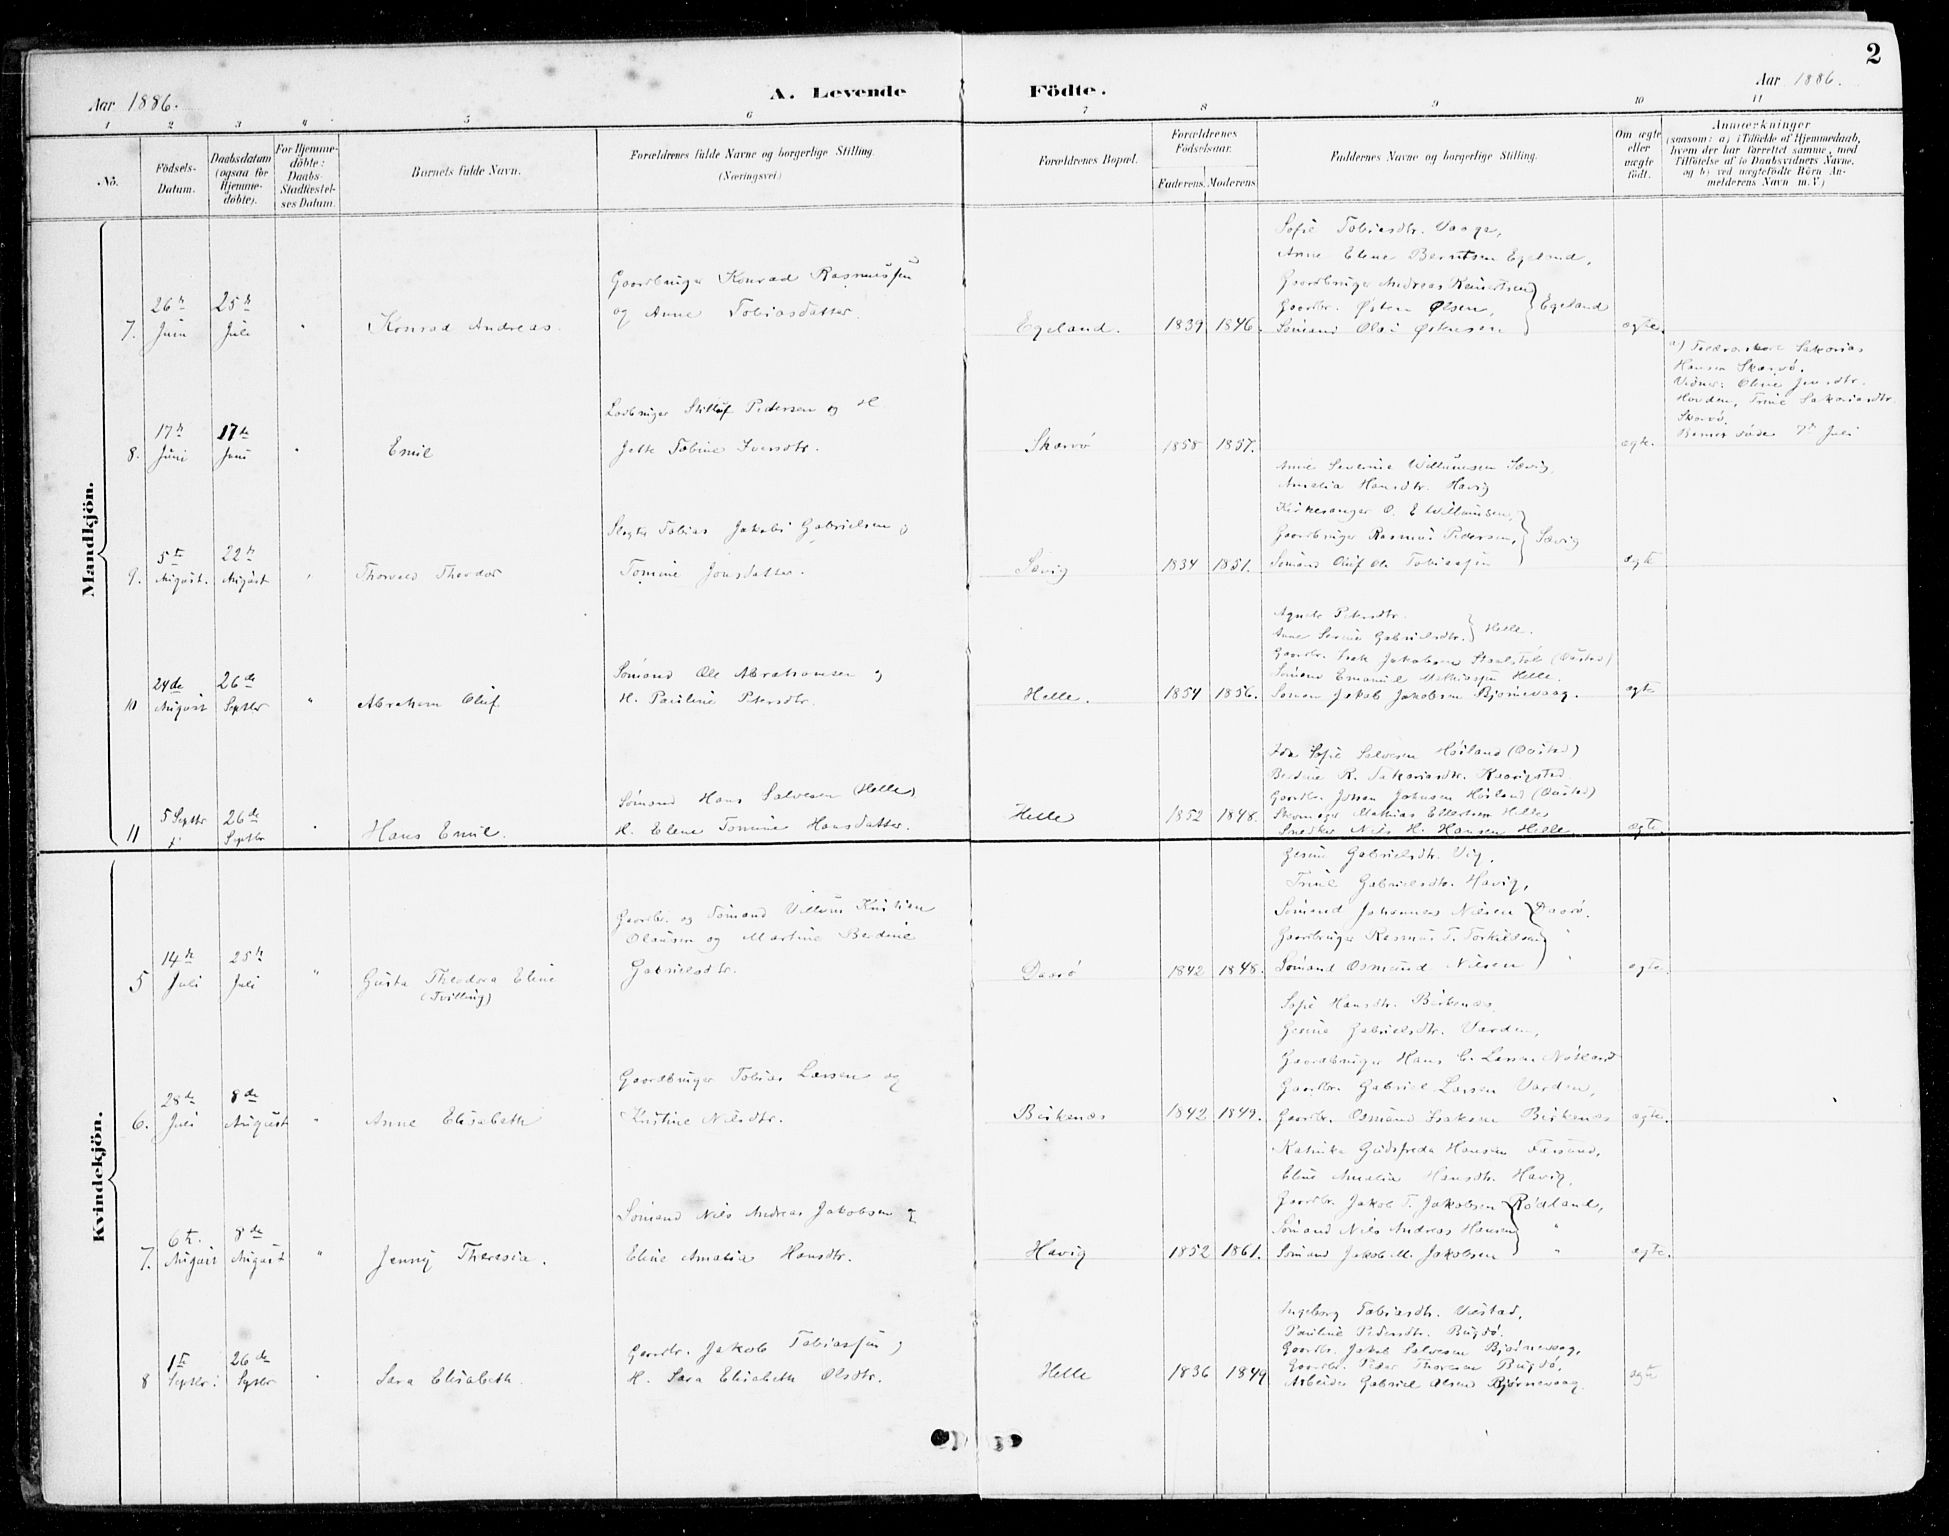 2
Aar 1886.
A. Levende Födte.
Aar 1886.
1 2 3 4 5 6 7 8 9 10 11
No.
Födsels-
Datum.
Daabsdatum
(ogsaa for
Hjemme-
döbte).
For Hjemme-
döbte:
Daabs-
Stadfæstel-
ses Datum.
Barnets fulde Navn.
Forældrenes fulde Navne og borgerlige Stilling.
(Næringsvei)
Forældrenes Bopæl.
Forældrenes
Födselsaar.
Faderens. Moderens.
Faddernes Navne og borgerlige Stilling.
Om ægte
eller
uægte
födt.
Anmærkninger
(saasom: a) i Tilfælde af Hjemmedaab,
hvem der har forrettet samme, med
Tilföielse af to Daabsvidners Navne,
og b) ved uægtefödte Börn An-
melderens Navn m. V.)
Mandkjön.
7.
26de
Juni
25de
Juli
"
Konrad Andreas.
Gaardbruger Konrad Rasmussen
og Anne Tobiasdatter.
Egeland.
1839
1846.
Sofie Tobiasdtr. Vaage,
Anne Elene Berntsen Egeland,
Gaardbruger Andreas
Gaardbr. Østen Olsen, Egeland
Sømand Olai Østensen
ægte.
8.
17de
Juni
17de
Juni
"
Emil
Pedersen og H.
Jette Tobine Iversdtr.
Skarvø
1858
1857.
ægte.
a) Sakarias
Hansen Skarvø.
Vidner: Oline Jensdtr.
Hovden, Trine Sakariasdtr.
Skarvø.
Barnet døde 7de Juli
9.
5te
August.
22de
August
"
Thorvald Theodor
Tobias Jakob Gabrielsen og
Tomine Jonsdatter.
Sævig
1834
1851.
Anne Severine Willumsen Sævig,
Amalia Hansdtr. Havig
Kirkesanger O. E. Willumsen,
Gaardbruger Rasmus Pedersen, Sævig
Sømand Oluf Ole Tobiassen
ægte
10
24de
August
26de
Septbr
"
Abraham Oluf
Sømand Ole Abrahamsen og
H. Pauline Petersdtr.
Helle.
1854
1856.
Agnete Petersdtr.
Anne Serine Gabrielsdtr. Helle.
Gaardbr. Isak Jakobsen
Sømand Emanuel Mathiassen Helle.
Jakob Jakobsen Bjørnevaag.
ægte
11
5 Septbr
26de
Septbr
"
Hans Emil.
Sømand Hans Salvesen (Helle)
H. Elene Tomine Hansdatter.
Helle
1852
1848.
Sofie Salvesen Høiland
Berdine R. Sakariasdtr.
Gaardbr. Johan Jakobsen Høiland
Skomager Mathias Ellertsen Helle
Snedker Nils H. Hansen Helle
ægte
Kvindekjön.
5
14de
Juli
25de
Juli
"
Gusta Theodora Eline
(Tvilling)
Gaardbr. og Sømand Villum Kristian
og Martine Berdine
Gabrielsdtr.
Daarø
1842
1848.
Gesine Gabrielsdtr. Vig,
Trine Gabrielsdtr. Havig,
Sømand Johannes Nilsen Daarø.
Gaardbruger Rasmus T. Torkildsen "
Sømand Osmund Nilsen "
ægte.
6.
28de
Juli
8de
August
"
Anne Elisabeth
Gaardbruger Tobias Larsen og
Kristine Nilsdtr.
Birkenæs
1842
1849.
Sofie Hansdtr. Birkenæs,
Gesine Gabrielsdtr. Varden,
Gaardbruger Hans C. Larsen
Gaardbr. Gabriel Larsen Varden,
Gaardbr. Osmund Isaksen Birkenæs
ægte.
7.
6te.
August
8de
August
"
Jenny Theresia.
Sømand Nils Andreas Jakobsen og
Eline Amalia Hansdtr.
Havig
1852
1861.
Katrika Gudsfreda Hansen Farsund,
Eline Amalia Hansdtr. Havig,
Gaardbr. Jakob T. Jakobsen Rødland,
Sømand Nils Andreas Hansen "
Sømand Jakob M. Jakobsen "
ægte.
8
1te
Septbr.
26de
Septbr
"
Sara Elisabeth.
Gaardbr. Jakob Tobiassen og
H. Sara Elisabeth Olsdtr.
Helle
1836
1849
Ingeborg Tobiasdtr.
Pauline Pedersdtr. Bugdø.
Gaardbr. Jakob Salvesen Bjørnevaag,
Gaardbr. Peder Thoresen Bugdø,
Arbeider Gabriel Olsen Bjørnevaag.
ægte